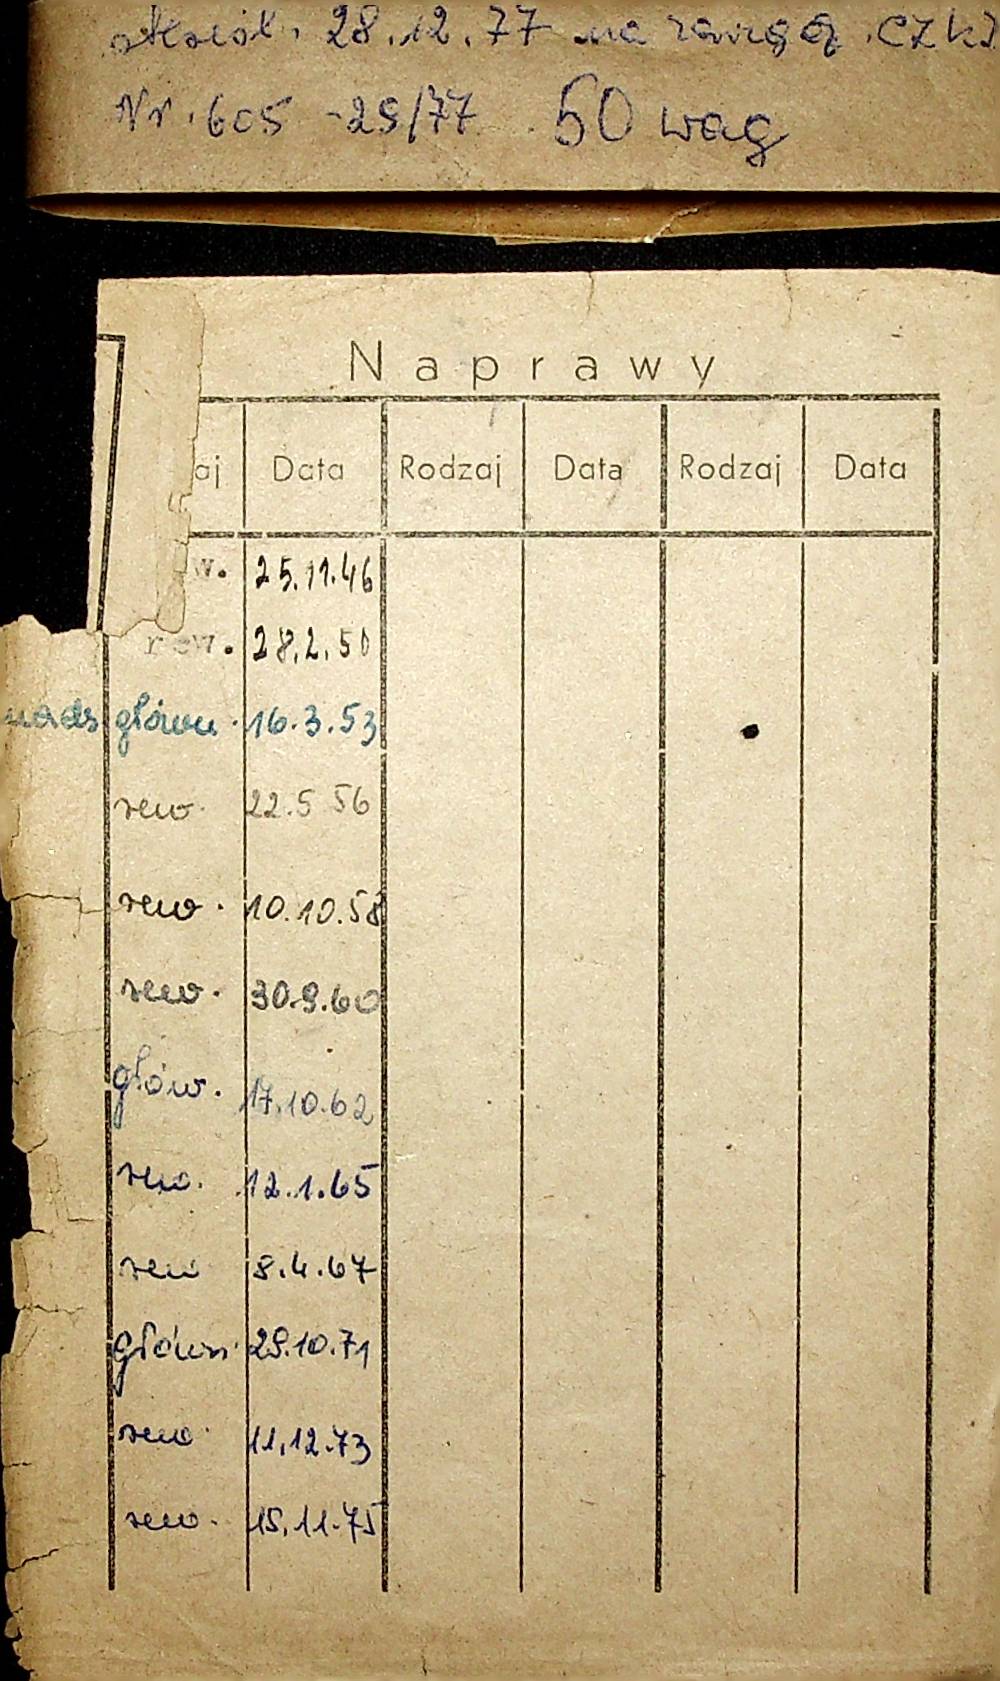 28.12.77 na
Nr. 605 -29/77 50 wag
Naprawy
aj Data Rodzaj Data Rodzaj Data
w. 25.11.46
rew. 28.2.50
główn. 16.3.53
rew. 22.5 56
rew. 10.10.58
rew. 30.9.60
głów. 17.10.62
rew. 12.1.65
rew 8.4.67
główn. 29.10.71
rew. 11.12.73
rew. 15.11.75